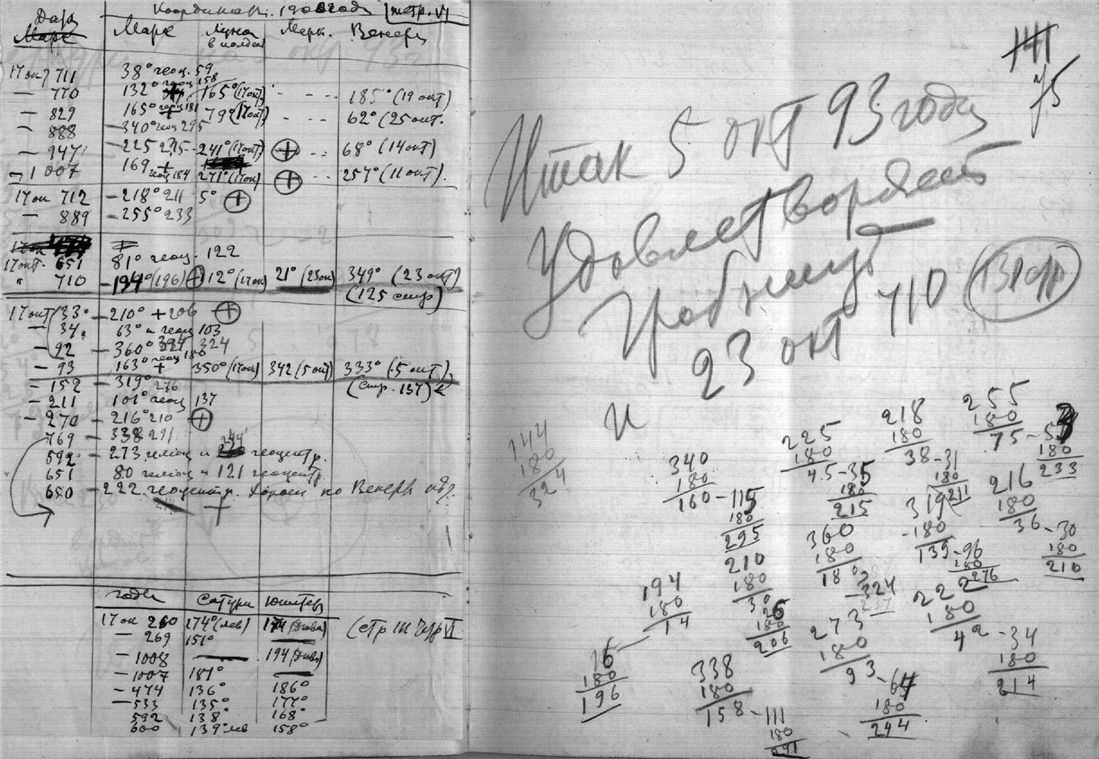 Координат. 190 году тетр. VI
Дата Марс Луна в полдень Мерк. Венера
17 окт 711 38° геоц. 59
— 770 132° геоц 158 165° (17 окт) - - - 185° (19 окт)
— 829 165° геоц 181 79° (17 окт) - - - 62° (25 окт.
— 888 340° геоц 295
— 947 225 215 - 241° (17 окт) 68° (14 окт)
— 1007 169 + геоц 184 271° (17 ок) 257° (11 окт).
17 ок 712 - 218° 211 5°
— 889 - 255° 233
17 окт. 651 81° геоц. 122
" 710 - 194° (196) 12° (17 ок) 21° (25 ок) 349° (23 окт)
(125 стр)
17 окт 33 - 210° + 206
— 34 63° и геоц 103
— 92 - 360° 324
— 93 163° + геоц 180 350° (17 окт) 342 (5 окт) 333° (5 окт)
(стр. 137)
— 152 - 319° 276
— 211 101° геоц 137
— 270 - 216° 210
769 - 338 291
592 - 273 гелиоц и 244 геоцентр.
651 80 гелиоц и 121 геоцентр
650 - 222 геоцентр. по Венере
года Сатурн Юпитер
17 ок 260 274° (лев) 174 (дева) (стр 111 тетр VI
— 269 151°
— 1008 194 (дев)
— 1007 187°
— 474 136° 186°
— 533 135° 177°
592 138° 168°
600 139° лев 158°
141
75
Итак 5 окт 93 года
Удовлетворяет
Гробницу
23 окт 710 (131 стр)
и
144
180
324
340
180
160 - 115
180
295
225
180
45 - 35
180
215
218
180
38 - 31
180
211
255
180
75 - 53
180
233
216
180
36 - 30
180
210
319
180
139 - 96
180
276
360
180
180
324
210
180
30
26
180
206
194
180
14
16
180
196
222
180
42 - 34
180
214
273
180
93 - 64
180
244
338
180
158 - 111
180
291